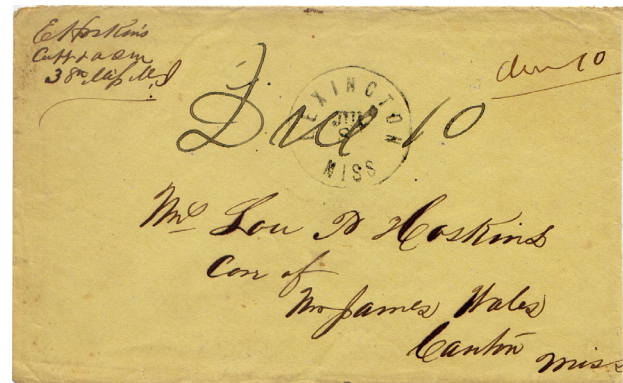 E Hoskins
Capt & a q m
38th Miss
Due 10
Due 10
LEXINGTON
MISS
Mrs Lou D Hoskins
Care of
Mr James Wales
Canton Miss